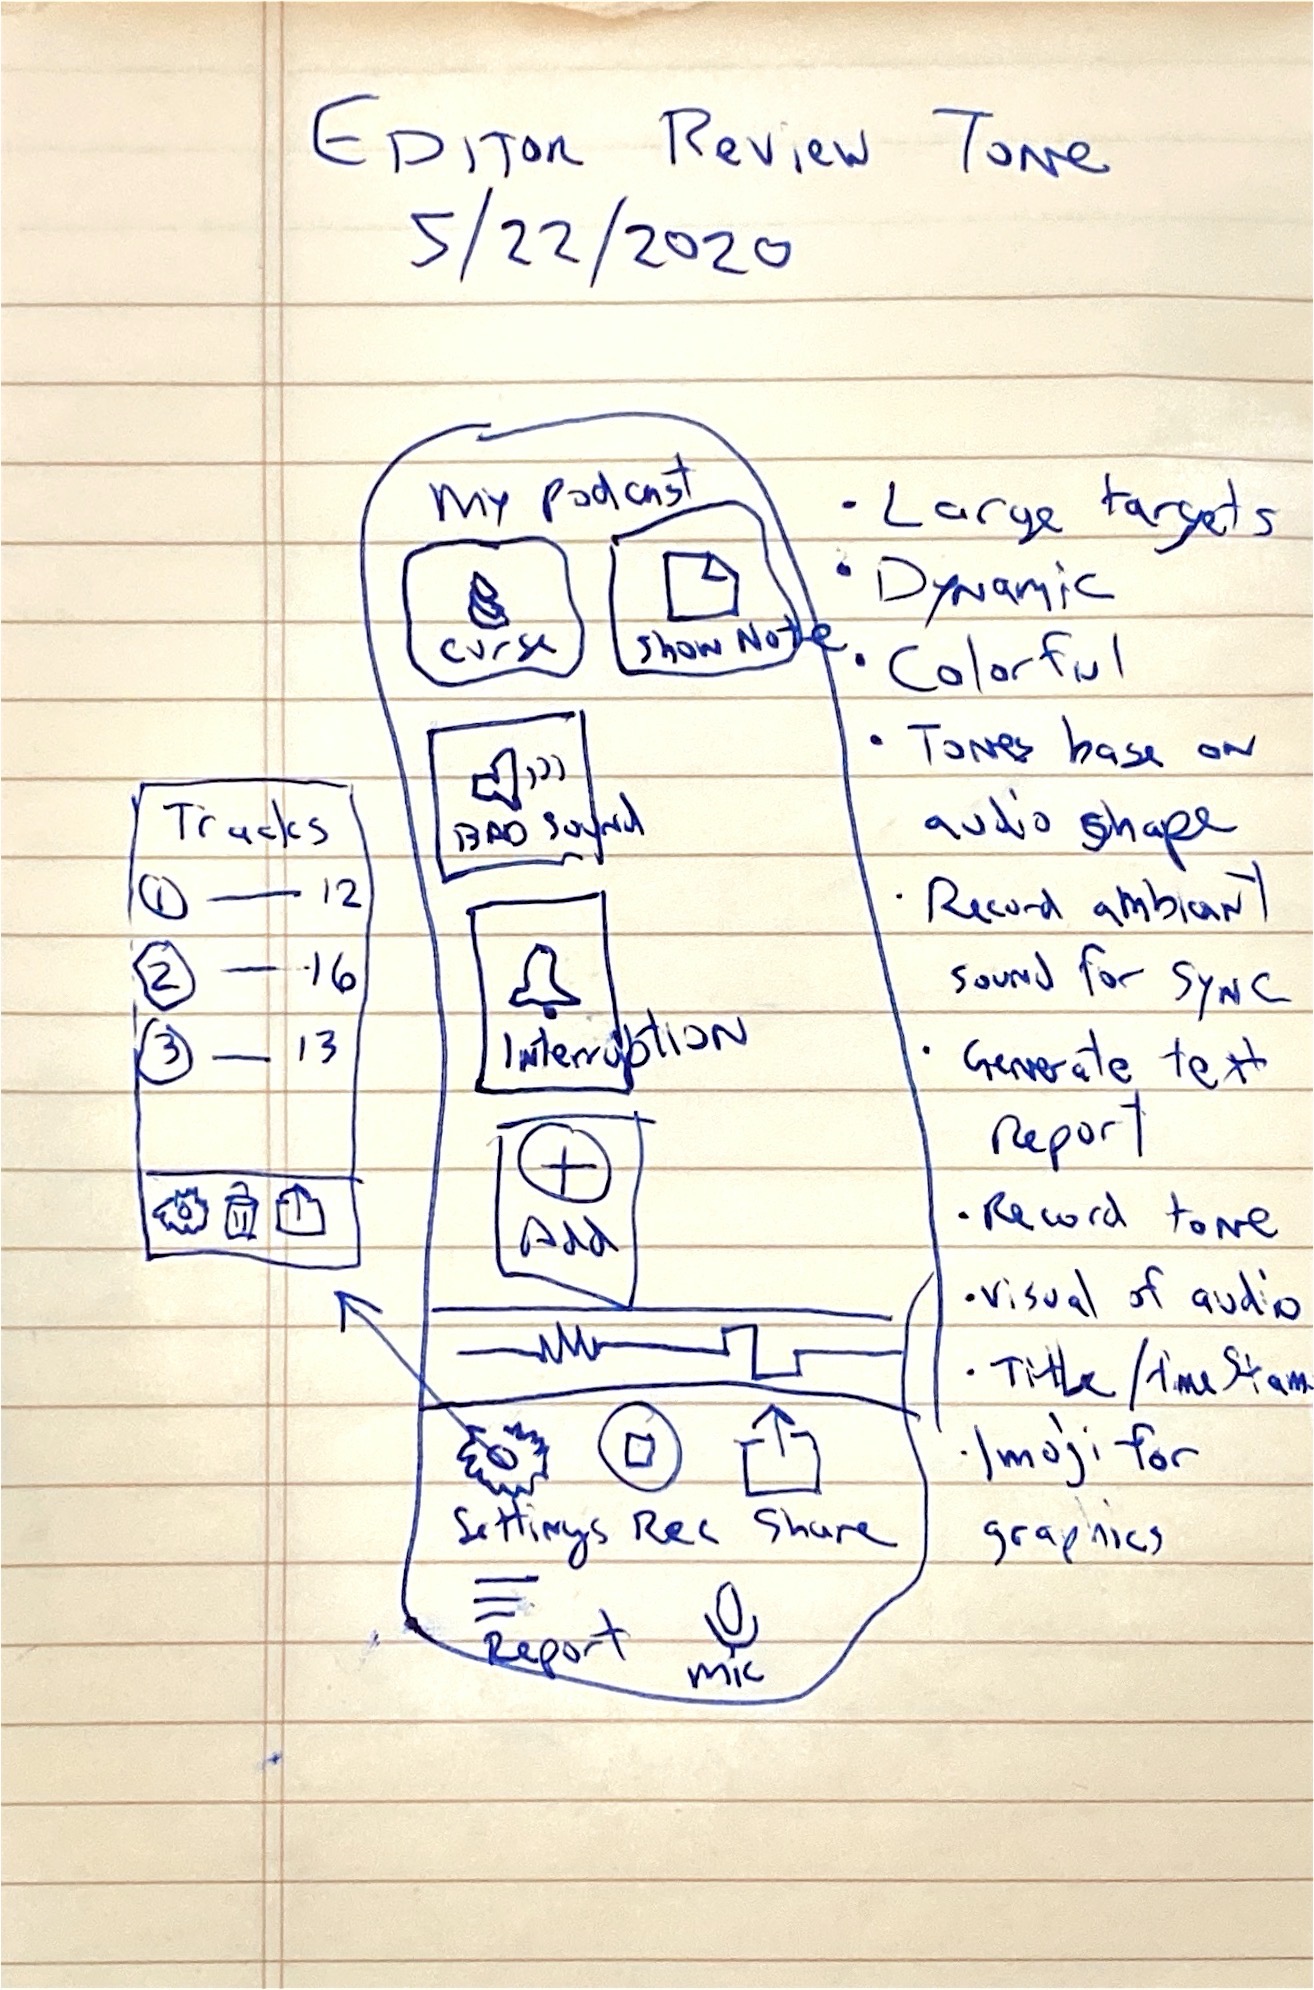 EDITOR Review Tone
5/22/2020
My podcast
curse
Show Note
BAD Sound
Interruption
Add
Settings Rec Share
Report
mic
Tracks
1 — 12
2 — 16
3 — 13
• Large targets
• Dynamic
• Colorful
• Tones base on
audio shape
• Record ambiant
sound for sync
• Generate text
Report
• Record tone
• Visual of audio
• Title/time Stam
• Imoji for
graphics